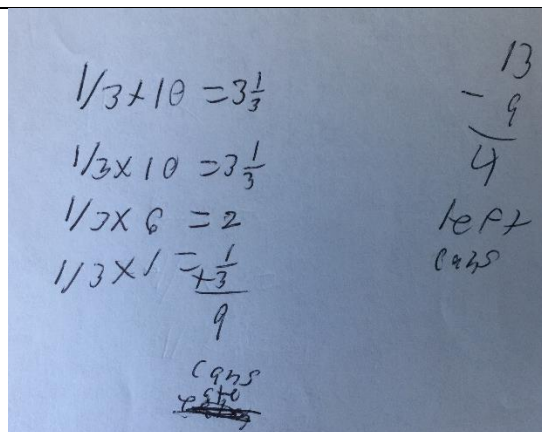 1/3 x 10 = 3 1/3
1/3 x 10 = 3 1/3
1/3 x 6 = 2
1/3 x 1 = + 1/3
9
cans
ate
13
- 9
4
left
cans